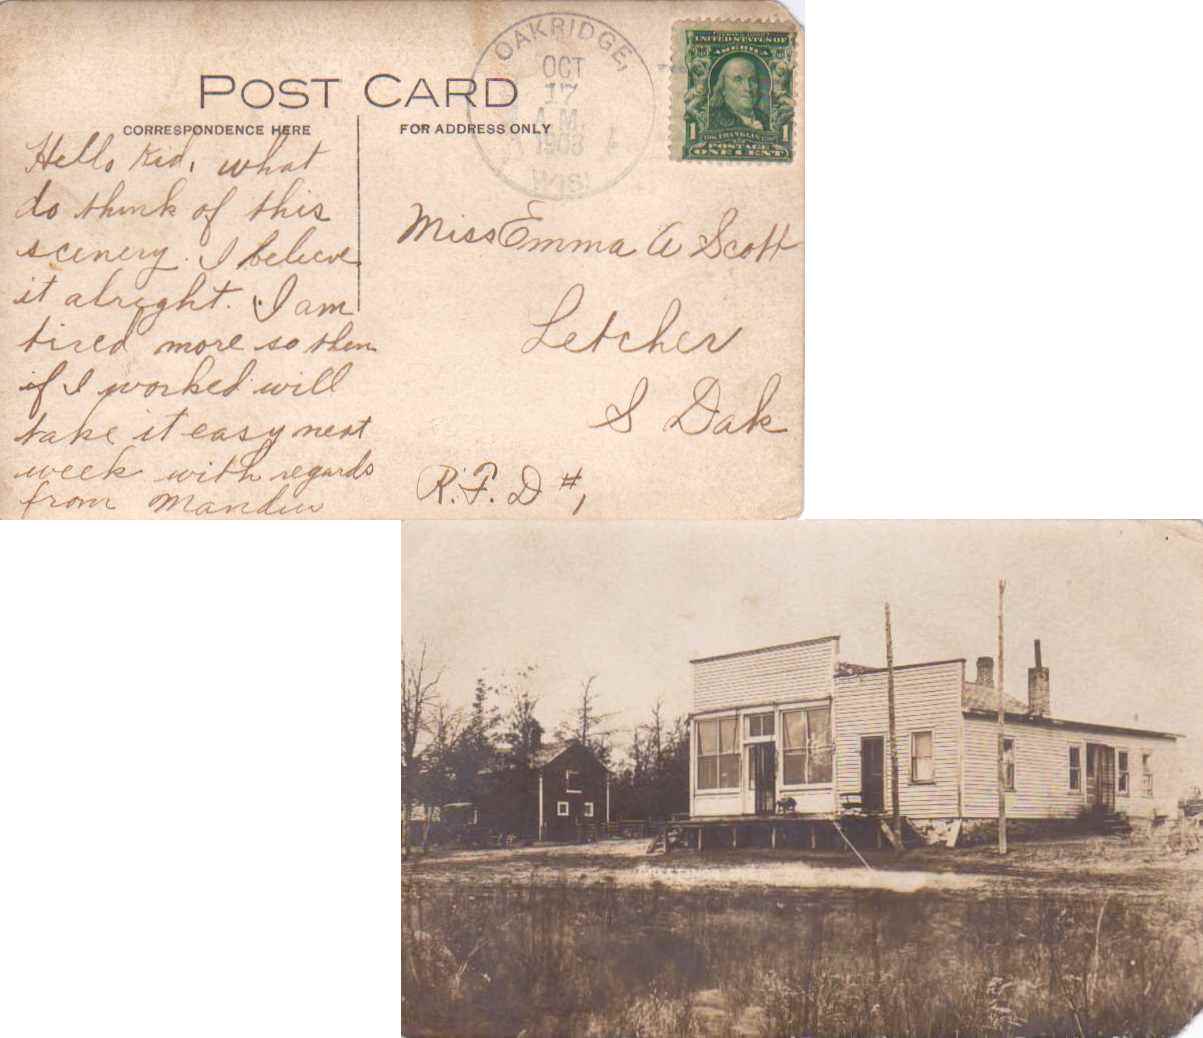 POST CARD
CORRESPONDENCE HERE
FOR ADDRESS ONLY
OAKRIDGE,
OCT
17
A.M.
1908
WIS.
UNITED STATES OF
AMERICA
1 FRANKLIN 1
POSTAGE
ONE CENT
Hello Kid, what
do think of this
scenery. I believe
it alright. I am
tired more so then
if I worked will
take it easy next
week with regards
from
Miss Emma A Scott
Letcher
S Dak
R.F.D #1